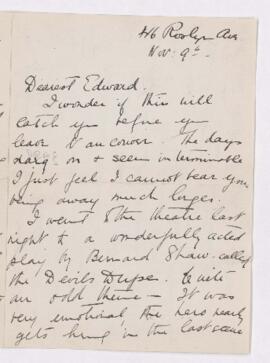 416 Roslyn Ave
Nov. 9th
Dearest Edward.
I wonder if this will
catch you before you
leave Vancouver. The days
drag on & seem interminable
I just feel I cannot bear your
being away much longer.
I went to the theatre last
night to a wonderfully acted
play by Bernard Shaw. called
the Devils Duspe. Quite
an odd theme — It was
very emotional the hero nearly
gets hung in the last scene